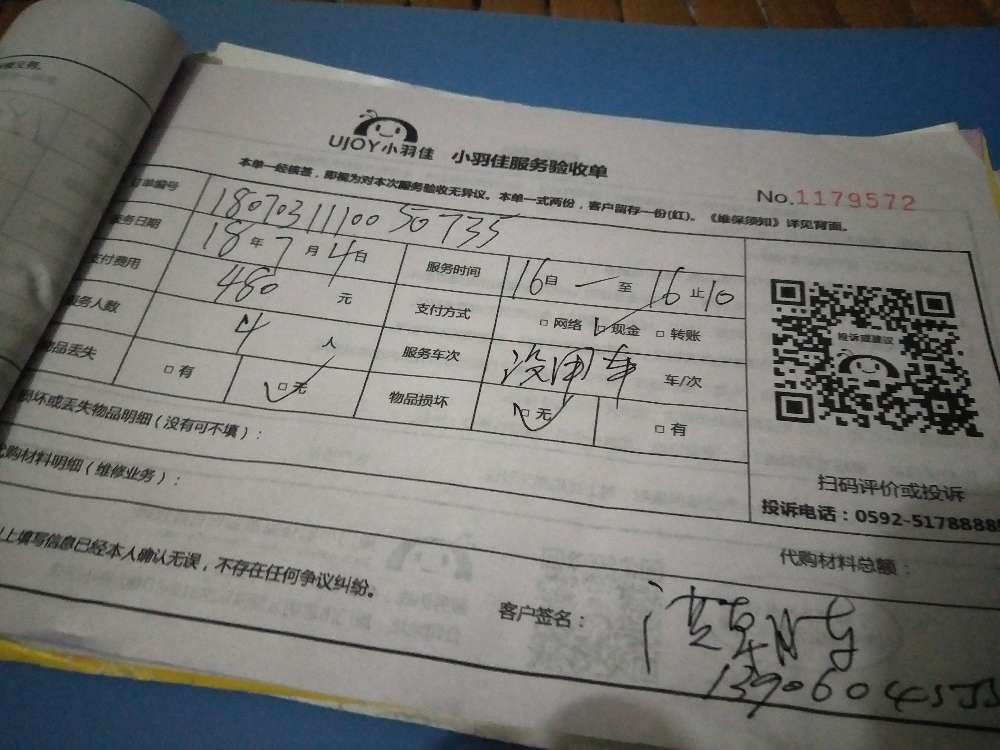 UJOY小羽佳 小羽佳服务验收单
本单一经核签，即视为对本次服务验收无异议。本单一式两份，客户留存一份(红)。《维保须知》详见背面。
No.1179572
订单编号 1807031110050735
服务日期 18年7月4日 服务时间 16自 — 至 16止10
支付费用 480元 支付方式 □网络 □现金 □转账
服务人数 4人 服务车次 没用车 车/次
物品丢失 □有 □无 物品损坏 □无 □有
损坏或丢失物品明细（没有可不填）：
代购材料明细（维修业务）：
投诉或建议
扫码评价或投诉
投诉电话：0592-5178888
代购材料总额：
以上填写信息已经本人确认无误，不存在任何争议纠纷。
客户签名：